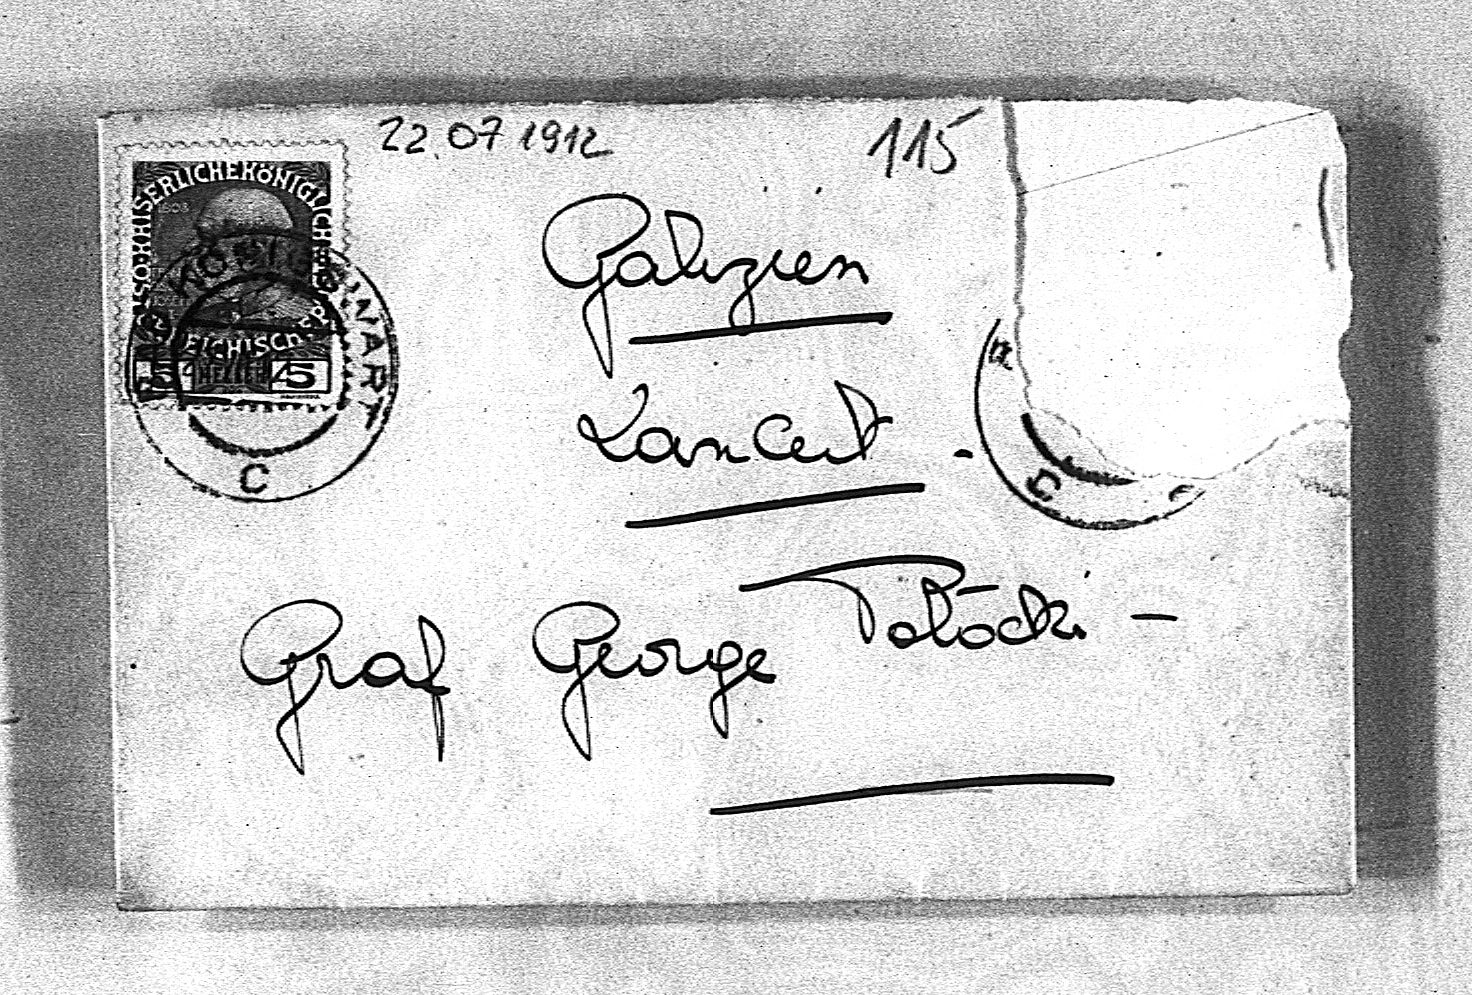 22.07 1912
115
KAISERLICHEKÖNIGLICHE
ÖSTERREICHISCHE
1908
HELLER 5
KÖNIGSWART
C
Galizien
Lancut -
C
Graf George Potocki -